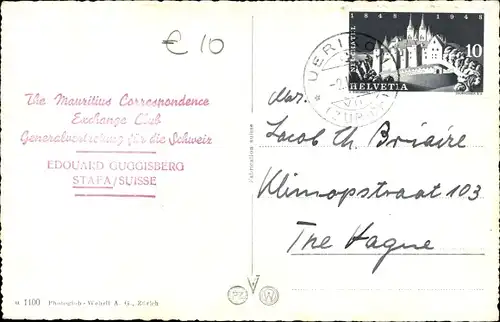 € 10
The Mauritius Correspondence
Exchange Club
Generalvertretung für die Schweiz
EDOUARD GUGGISBERG
STAFA/SUISSE
1848 1948
NEUCHATEL
10
HELVETIA
UERI
Jacob Th. Briaire
Klimopstraat 103
The Hague
1100 Photoglob-Wehrli A. G., Zürich
PZ W